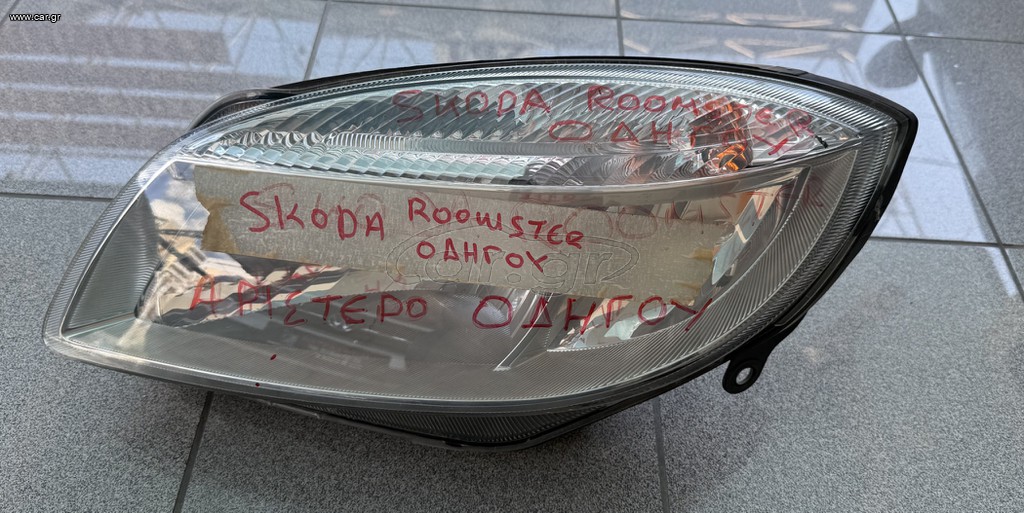 www.car.gr
SKODA ROOMSTER
ΟΔΗΓΟΥ
SKODA ROOMSTER
ΟΔΗΓΟΥ
car.gr
ΑΡΙΣΤΕΡΟ ΟΔΗΓΟΥ